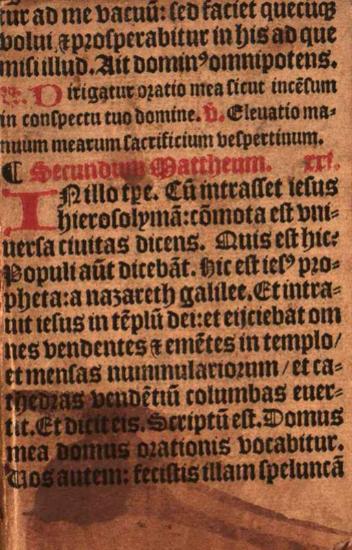 tur ad me vacuū: sed faciet quecūq;
volui ⁊ prosperabitur in his ad que
misi illud. Ait domin⁹ omnipotens.
Dirigatur oratio mea sicut incēsum
in conspectu tuo domine. ℣. Eleuatio ma-
nuum mearum sacrificium vespertinum.
¶ Secundum Mattheum. xxi.
IN illo tp̄e. Cū intrasset iesus
hierosolymā: cōmota est vni-
uersa ciuitas dicens. Quis est hic?
Populi aūt dicebāt. Hic est ies⁹ pro-
pheta: a nazareth galilee. Et intra-
uit iesus in tēplū dei: et eijciebat om
nes vendentes ⁊ emētes in templo/
et mensas nummulariorum/ et ca-
thedras vendētiū columbas euer-
tit. Et dicit eis. Scriptū est. Domus
mea domus orationis vocabitur.
Uos autem: fecistis illam speluncā